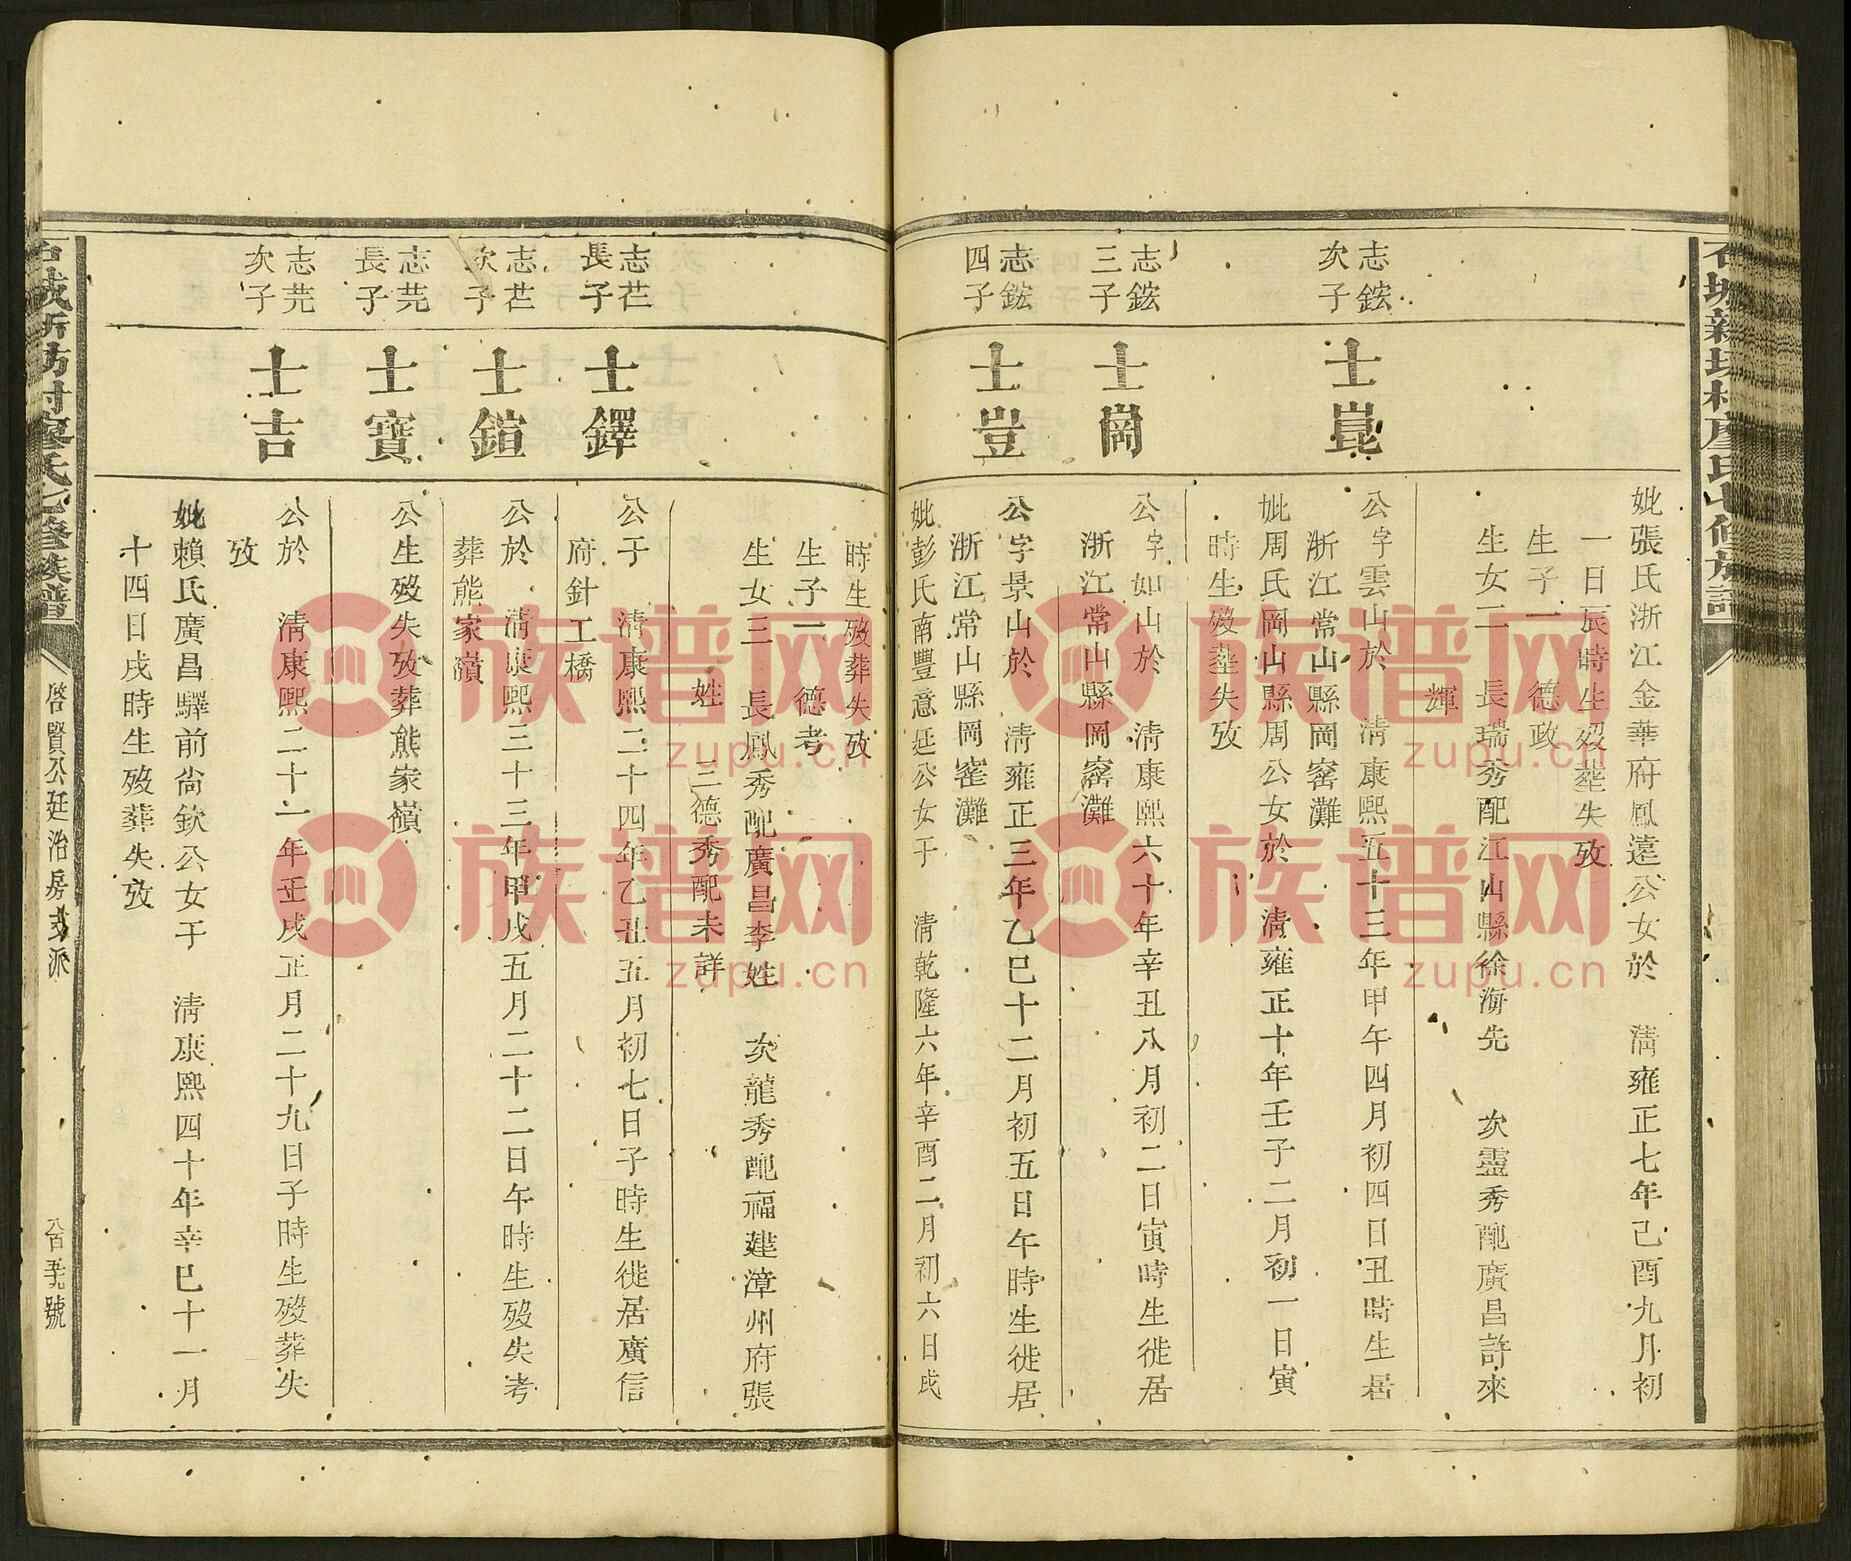 妣張氏浙江金華府鳳遠公女於 清雍正七年己酉九月初
一日辰時生歿塟失攷
生子一 德政
生女二 長瑞秀配江山縣徐海先 次靈秀配廣昌許來
輝
志鋐
次子
士崑
公字雲山於 清康熙五十三年甲午四月初四日丑時生居
浙江常山縣岡窰灘
妣周氏岡山縣周公女於 清雍正十年壬子二月初一日寅
時生歿塟失攷
志鋐
三子
士崗
公字如山於 清康熙六十年辛丑八月初二日寅時生徙居
浙江常山縣岡窰灘
志鋐
四子
士豈
公字景山於 清雍正三年乙巳十二月初五日午時生徙居
浙江常山縣岡窰灘
妣彭氏南豐意廷公女于 清乾隆六年辛酉二月初六日戌
時生歿葬失攷
生子一 德考
生女三 長鳳秀配廣昌李姓 次龍秀配福建漳州府張
姓 三德秀配未詳
志芢
長子
士鐸
公于 清康熙二十四年乙丑五月初七日子時生徙居廣信
府針工橋
志芢
次子
士鎧
公於 清康熙三十三年甲戌五月二十二日午時生歿失考
葬熊家嶺
志芫
長子
士寶
公生歿失攷葬熊家嶺
志芫
次子
士吉
公於 清康熙二十一年壬戌正月二十九日子時生歿葬失
攷
妣賴氏廣昌驛前尙欽公女于 清康熙四十年辛巳十一月
十四日戌時生歿葬失攷
石城新坊村廖氏七修族譜
啓賢公廷治房文派
八百五九號
族谱网
zupu.cn
族谱网
zupu.cn
族谱网
zupu.cn
族谱网
zupu.cn